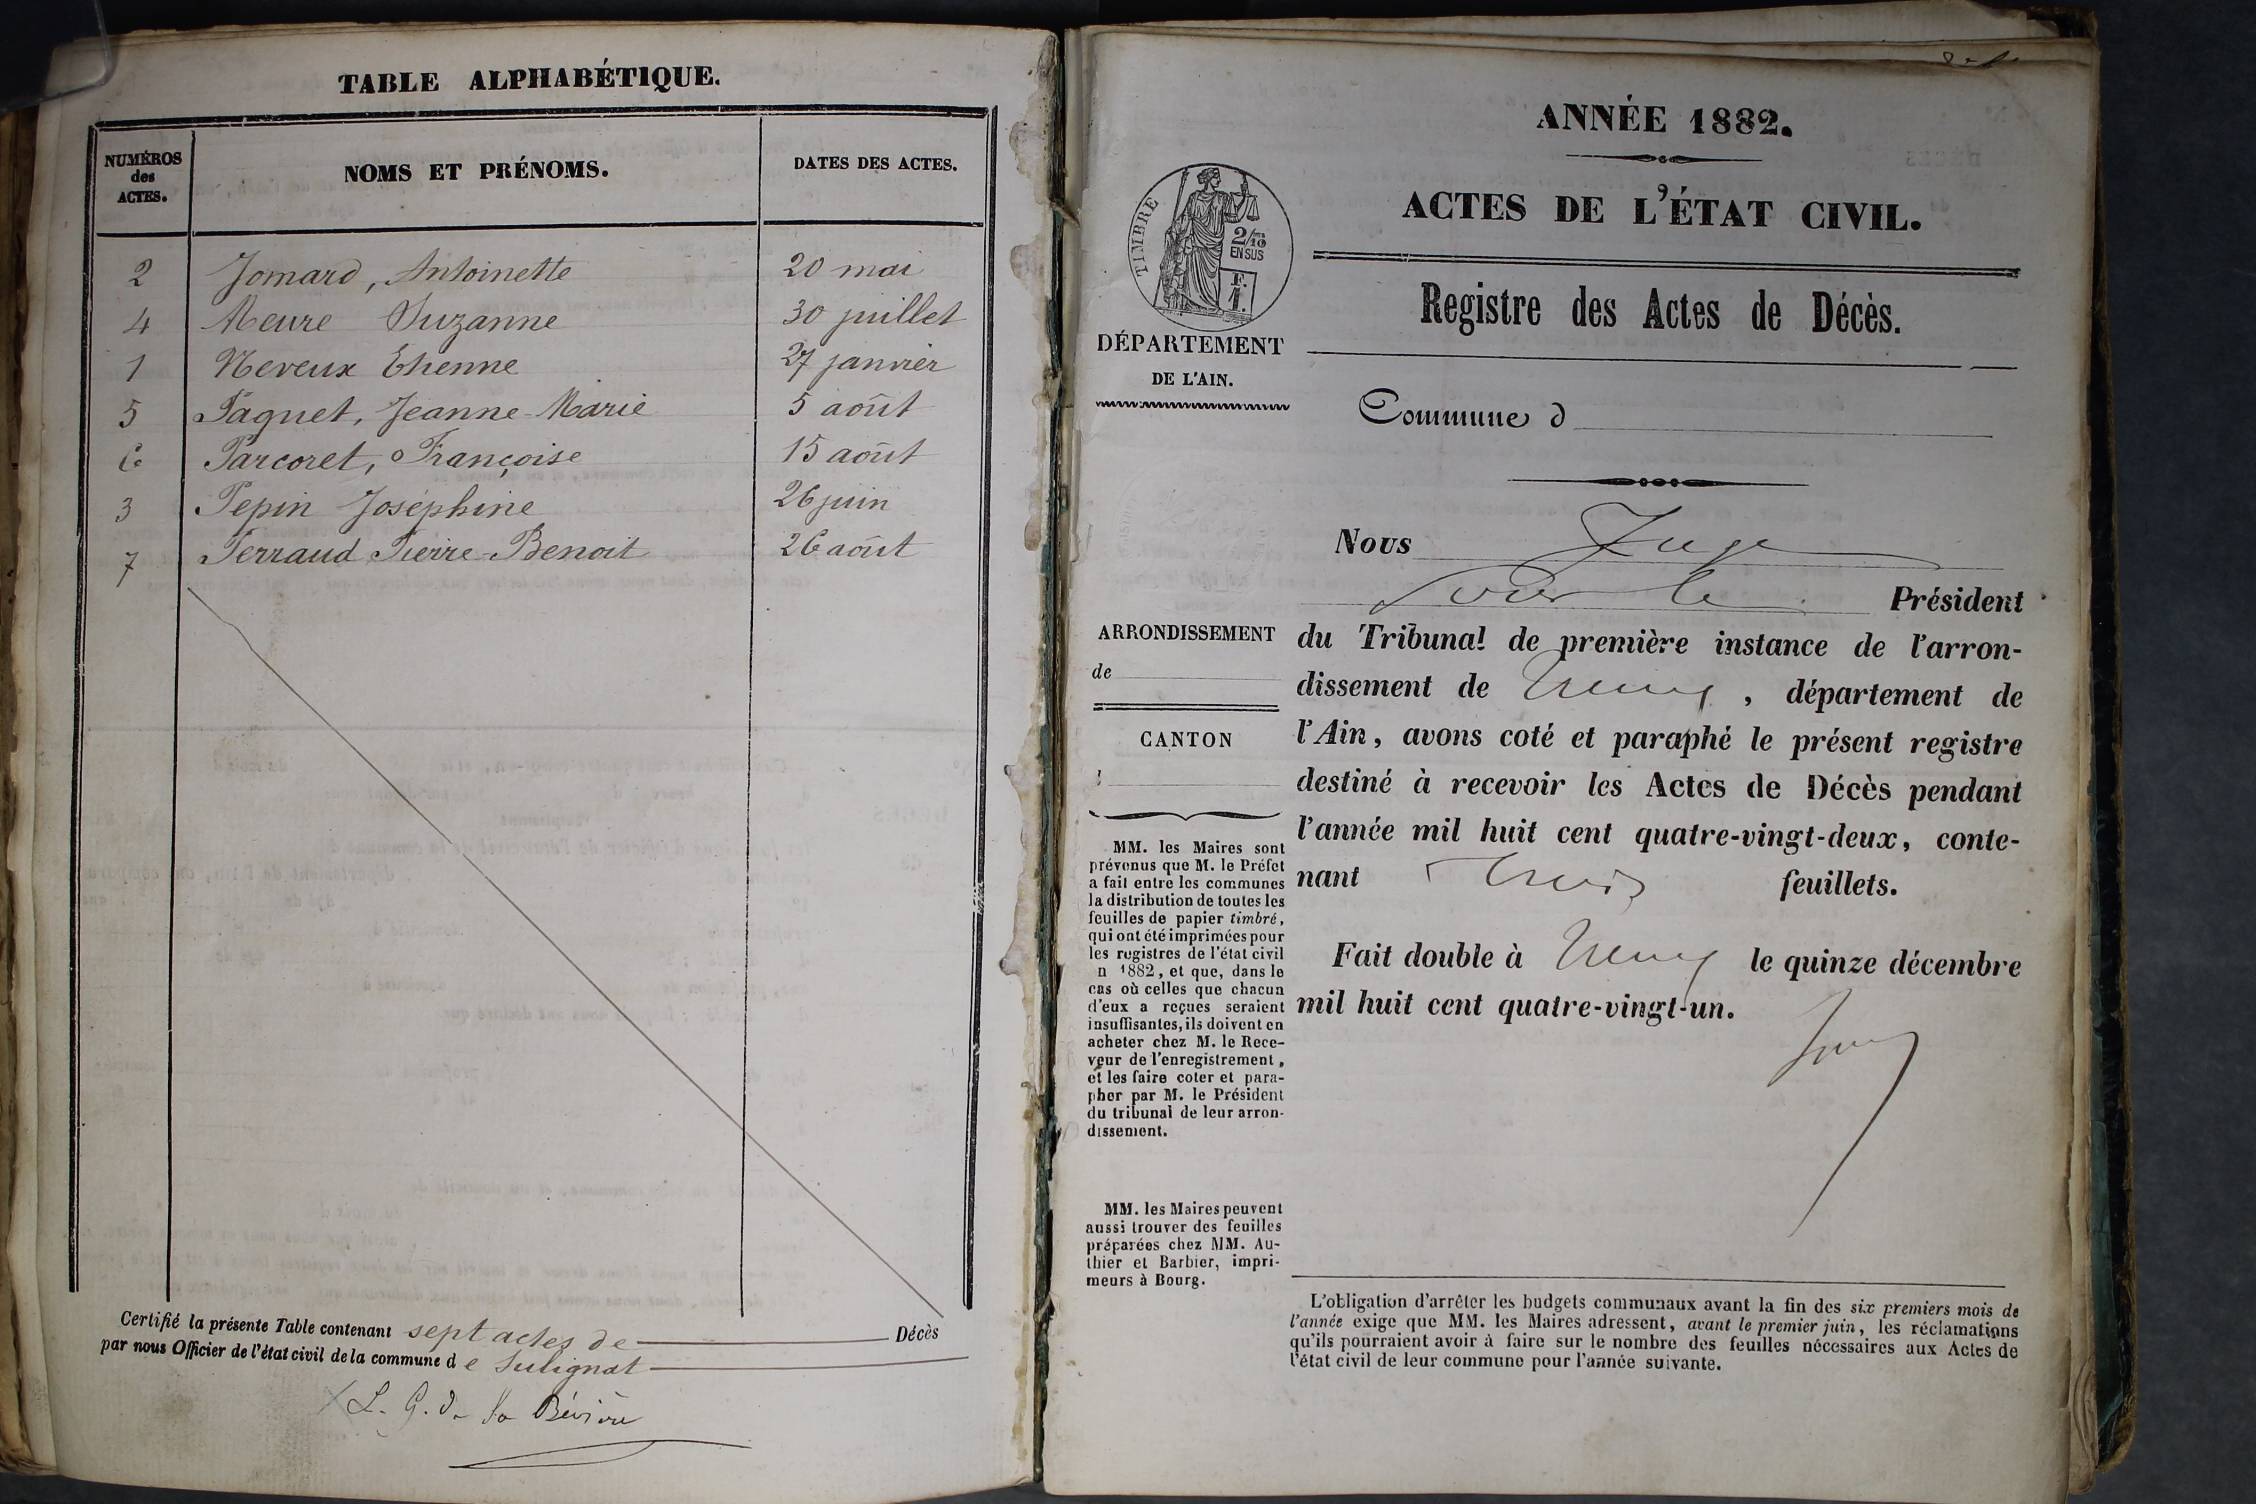 TABLE ALPHABÉTIQUE.
NUMÉROS des ACTES. NOMS ET PRÉNOMS. DATES DES ACTES.
2 Jomard, Antoinette 20 mai
4 Meure Suzanne 30 juillet
1 Neveux Etienne 27 janvier
5 Paquet, Jeanne-Marie 5 août
6 Parcoret, Françoise 15 août
3 Pepin Joséphine 26 juin
7 Perraud Pierre-Benoit 26 août
Certifié la présente Table contenant sept actes de Décès
par nous Officier de l'état civil de la commune de Sulignat
L. G. de la Bévière
ANNÉE 1882.
ACTES DE L'ÉTAT CIVIL.
TIMBRE
2/10
EN SUS
F.
1.
Registre des Actes de Décès.
DÉPARTEMENT
DE L'AIN.
Commune d
Nous Juge
pour le Président
du Tribunal de première instance de l'arron-
dissement de Trévoux, département de
l'Ain, avons coté et paraphé le présent registre
destiné à recevoir les Actes de Décès pendant
l'année mil huit cent quatre-vingt-deux, conte-
nant trois feuillets.
Fait double à Trévoux le quinze décembre
mil huit cent quatre-vingt-un.
ARRONDISSEMENT
de
CANTON
MM. les Maires sont
prévenus que M. le Préfet
a fait entre les communes
la distribution de toutes les
feuilles de papier timbré,
qui ont été imprimées pour
les registres de l'état civil
n 1882, et que, dans le
cas où celles que chacun
d'eux a reçues seraient
insuffisantes, ils doivent en
acheter chez M. le Rece-
veur de l'enregistrement,
et les faire coter et para-
pher par M. le Président
du tribunal de leur arron-
dissement.
MM. les Maires peuvent
aussi trouver des feuilles
préparées chez MM. Au-
thier et Barbier, impri-
meurs à Bourg.
L'obligation d'arrêter les budgets communaux avant la fin des six premiers mois de
l'année exige que MM. les Maires adressent, avant le premier juin, les réclamations
qu'ils pourraient avoir à faire sur le nombre des feuilles nécessaires aux Actes de
l'état civil de leur commune pour l'année suivante.